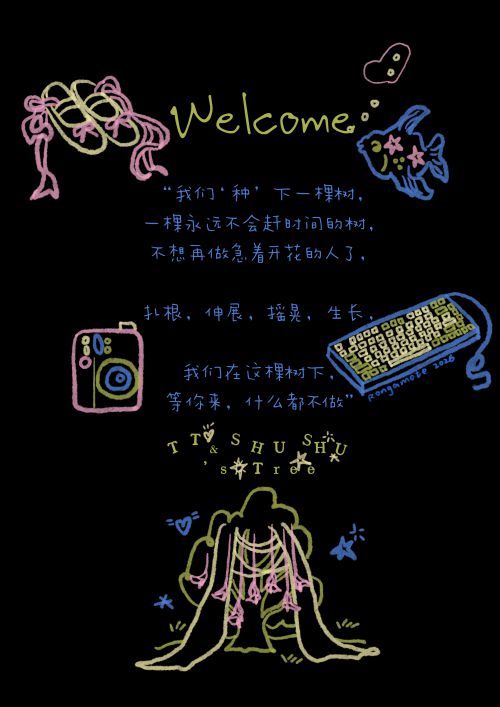 Welcome
“我们‘种’下一棵树，
一棵永远不会赶时间的树，
不想再做急着开花的人了，
扎根，伸展，摇晃，生长，
我们在这棵树下，
等你来，什么都不做”
Rongamote 2026
TT & SHU SHU
's Tree